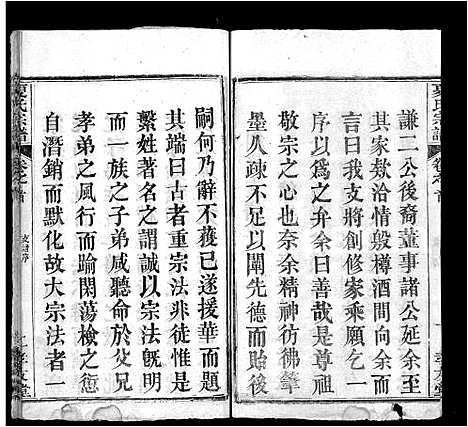 夏氏宗譜
卷之首
謙二公後裔董事諸公延余至
其家欵洽情般樽酒間向余而
言曰我族創修家乘願乞一
序以爲之弁余曰善哉
敬宗之心奈余精神彷彿筆
墨久疎不足以闡先德而啟後
嗣何乃辭不獲已遂援筆而題
其端曰古者重宗法非徒博一
繫姓著名之謂誠以宗法立
而一族之子弟咸聽命於宗子
孝弟之風行而踰閑蕩檢之愆
自潛銷而默化故大宗法者一
夏氏宗譜
卷之首
孝友堂